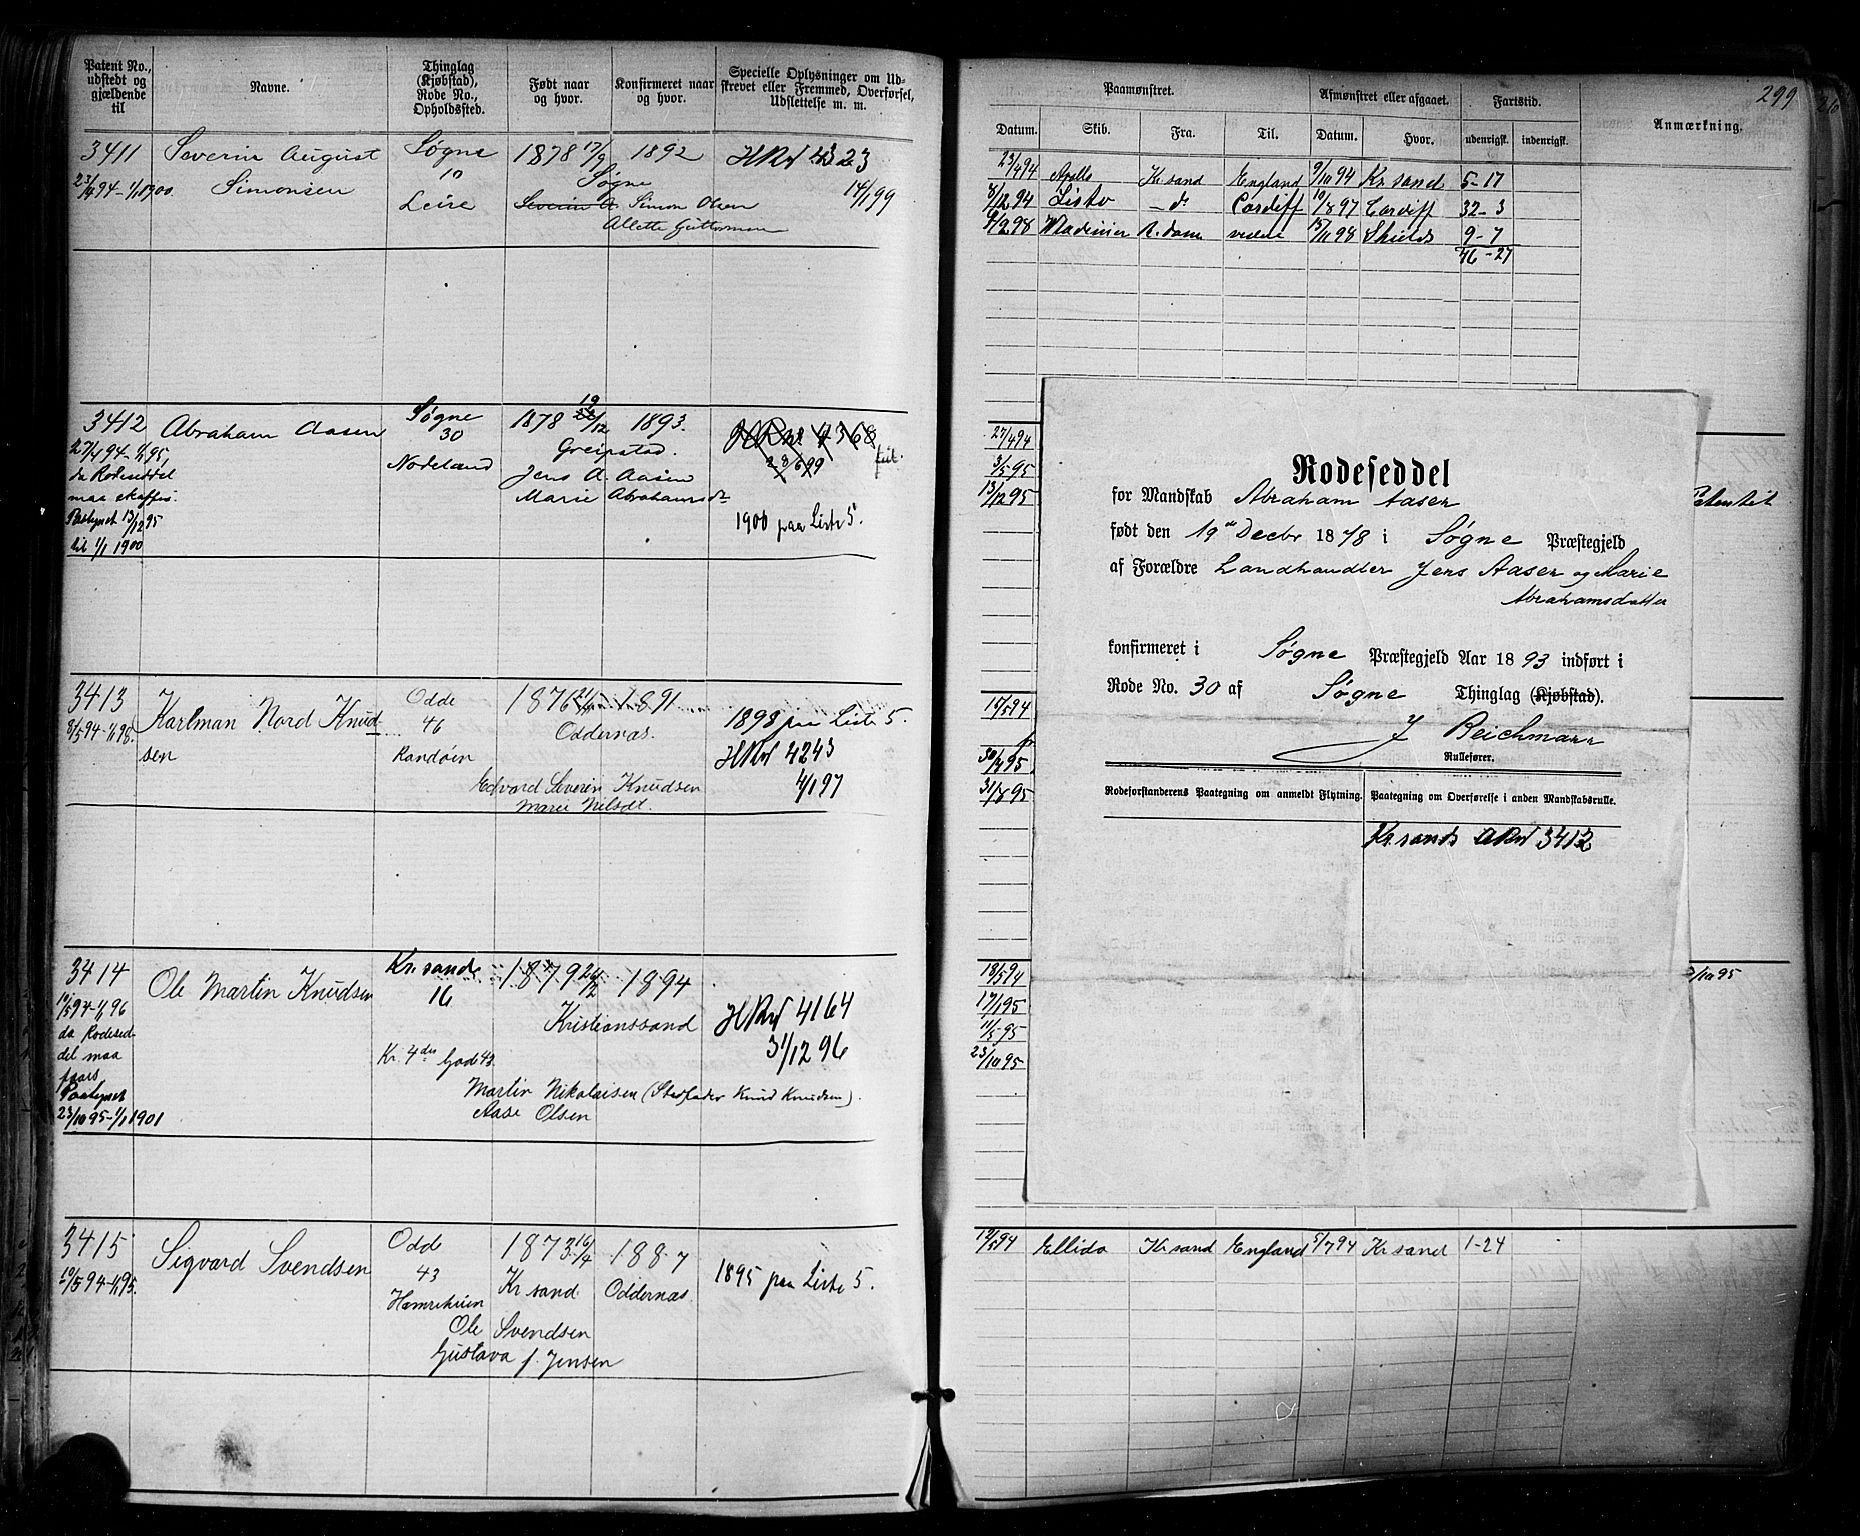 Patent No., udstedt og gjældende til
Navne.
Thinglag (Kjøbstad), Rode No., Opholdssted.
Født naar og hvor.
Konfirmeret naar og hvor.
Specielle Oplysninger om Udskrevet eller Fremmed, Overførsel, Udslettelse m. m.
3411
23/4 94-1/1 1900
Severin August
Simonsen
Søgne
10
Leire
1878 17/9 1892
Søgne
Simon Olsen
Allette Guttormsen
14/1 99
3412
27/4 94-1/1 95,
da Rodeseddel
maa skaffes.
Paategnet 13/12 95
til 1/1 1900
Abraham Aasen
Søgne
30
Nodeland
1878 19/12 1893.
Greipstad.
Jens A. Aasen
Marie Abrahamsdr
4368
23/6 99
feil.
1900 paa Liste 5.
3413
8/5 94-1/1 98.
Karlman Nord Knud-
sen
Odde
46
Randøen
1876 1891
Oddernæs.
Edvard Severin Knudsen
Marie Nilsdt.
1898 paa Liste 5.
HRN 4243
4/1 97
3414
10/5 94-1/1 96
da Rodesed-
del maa
faaes
Paategnet
23/10 95-1/1 1901
Ole Martin Knudsen
Kr.sand
16
Kr. 4de Gade 43.
1879 24/2 1894
Kristianssand
Martin Nikolaisen (Stedfader Knud Knudsen).
Aase Olsen
HRN 4164
31/12 96
3415
19/5 94-1/1 95.
Sigvard Svendsen
Odd
43
Hamreheien
1873 16/4 1887
Kr sand Oddernæs
Ole Svendsen
Gustava f. Jensen
1895 paa Liste 5.
299
Paamønstret.
Afmønstret eller afgaaet.
Fartstid.
Anmærkning.
Datum. Skib. Fra. Til. Datum. Hvor. udenrigsk. indenrigsk.
23/4 94 Apollo Kr.sand England 9/10 94 Kr.sand 5-17
8/12 94 Lista - d° Cardiff 10/8 97 Cardiff 32-3
Wladimier A.dam 13/11 98 Shields 9-7
46-27
27/4 94
3/5 95
13/12 95
30/4 95
31/8 95
18/5 94
17/1 95
11/5 95
23/10 95
/10 95
Rodeseddel
for Mandskab Abraham Aasen
født den 19de Decbr 1878 i Søgne Præstegjeld
af Forældre Landhandler Jens Aasen og Marie
Abrahamsdatter
konfirmeret i Søgne Præstegjeld Aar 1893 indført i
Rode No. 30 af Søgne Thinglag (Kjøbstad).
J Reichmann
Rullefører.
Rodeforstanderens Paategning om anmeldt Flytning. Paategning om Overførelse i anden Mandskabsrulle.
Kr.sands ARN 3412
19/5 94 Ellida Kr sand England 5/7 94 Kr sand 1-24